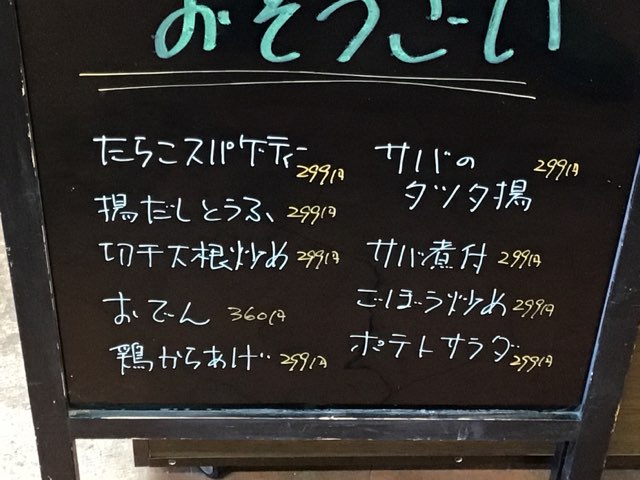 おそうざい
たらこスパゲティー 299円
揚だしとうふ 299円
切干大根炒め 299円
おでん 360円
鶏からあげ 299円
サバの
タツタ揚 299円
サバ煮付 299円
ごぼう炒め 299円
ポテトサラダ 299円